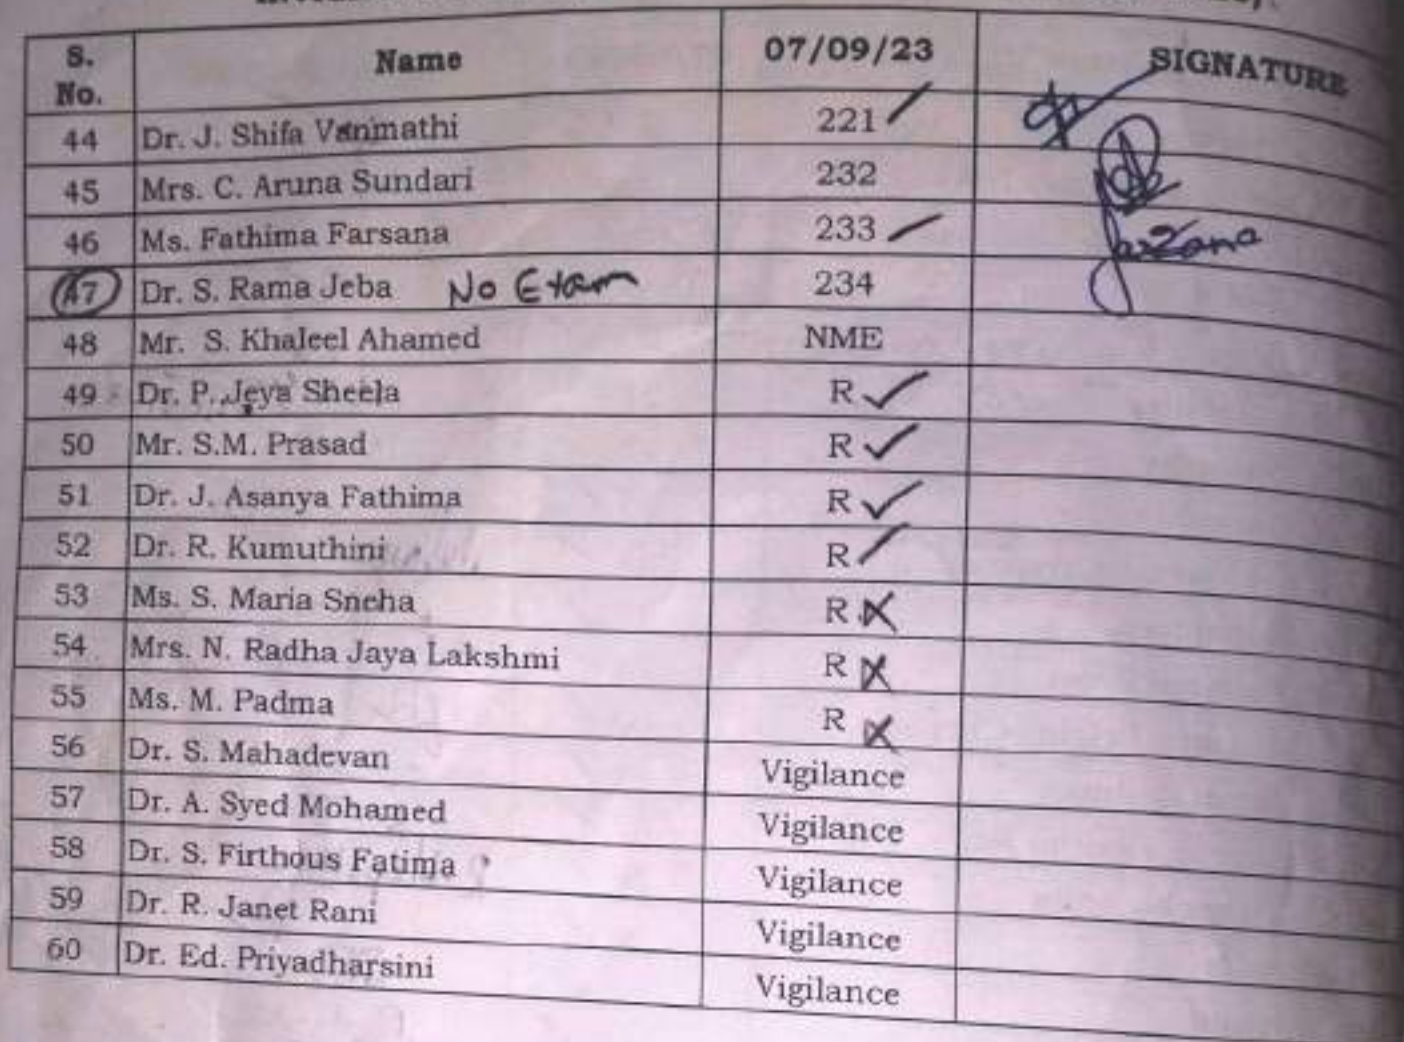 S. No. Name 07/09/23 SIGNATURE
44 Dr. J. Shifa Vanmathi 221
45 Mrs. C. Aruna Sundari 232
46 Ms. Fathima Farsana 233 Farzana
47 Dr. S. Rama Jeba No Exam 234
48 Mr. S. Khaleel Ahamed NME
49 Dr. P. Jeya Sheela R ✓
50 Mr. S.M. Prasad R ✓
51 Dr. J. Asanya Fathima R ✓
52 Dr. R. Kumuthini R
53 Ms. S. Maria Sneha R X
54 Mrs. N. Radha Jaya Lakshmi R X
55 Ms. M. Padma R X
56 Dr. S. Mahadevan Vigilance
57 Dr. A. Syed Mohamed Vigilance
58 Dr. S. Firthous Fatima Vigilance
59 Dr. R. Janet Rani Vigilance
60 Dr. Ed. Priyadharsini Vigilance